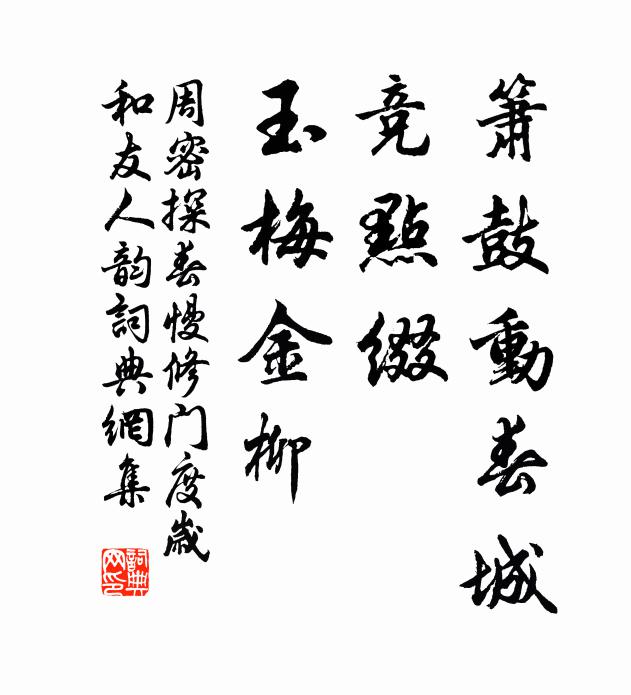 簫鼓動春城
競點綴
玉梅金柳
周密探春慢修門度歲
和友人韵詞典網集
詞典網印